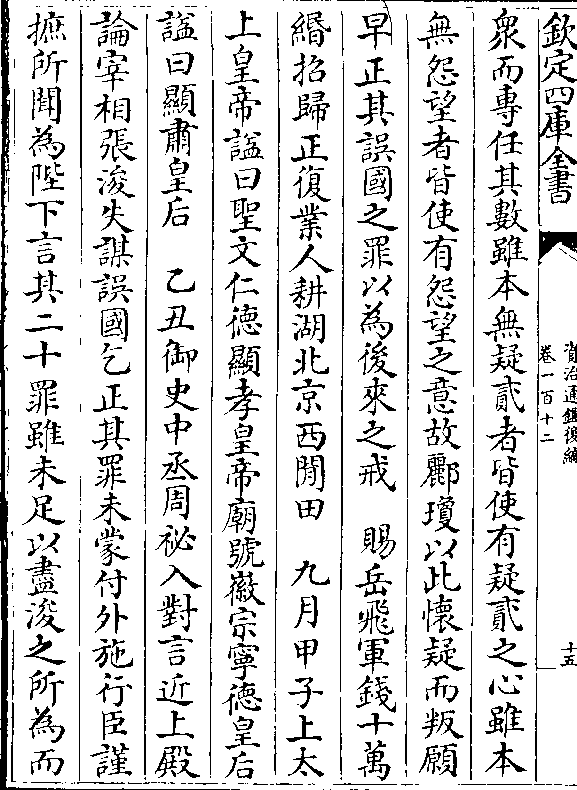 欽定四庫全書
資治通鑑後編
卷一百十二
十五
衆而專任其數雖本無疑貳者皆使有疑貳之心雖本
無怨望者皆使有怨望之意故酈瓊以此懷疑而叛願
早正其誤國之罪以為後來之戒　賜岳飛軍錢十萬
緡招歸正復業人耕湖北京西閒田　九月甲子上太
上皇帝諡曰聖文仁德顯孝皇帝廟號徽宗寧德皇后
諡曰顯肅皇后　乙丑御史中丞周祕入對言近上殿
論宰相張浚失謀誤國乞正其罪未蒙付外施行臣謹
摭所聞為陛下言其二十罪雖未足以盡浚之所為而